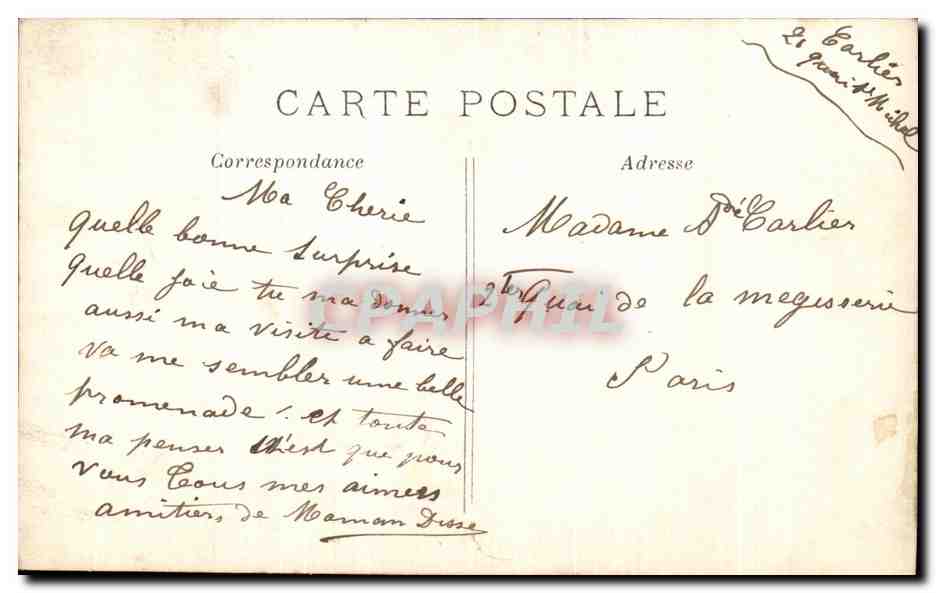 Carlier
21 quai St Michel
CARTE POSTALE
Correspondance
Ma Cherie
quelle bonne surprise
quelle joie tu ma donner
aussi ma visite a faire
va me sembler une belle
promenade! et toute
ma penser n'est que pour
vous Tous mes aimers
amitiers de Maman Disse
Adresse
Madame Ddé Carlier
2ter Quai de la megisserie
Paris
CPAPHIL